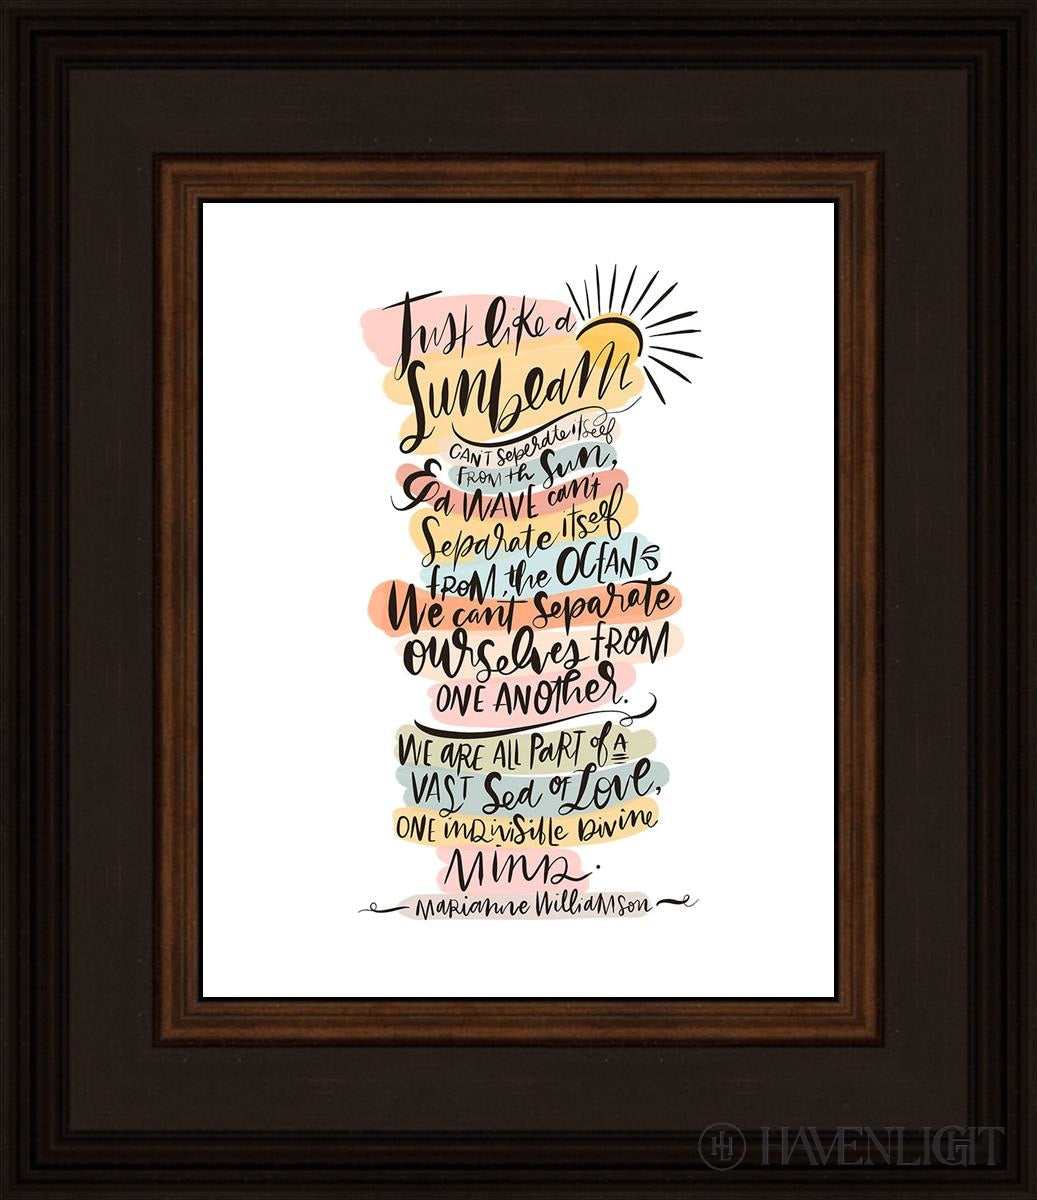 Just like a
Sunbeam
CAN'T Seperate itself
FROM th Sun,
& a WAVE can't
Separate itself
FROM the OCEAN
We can't Separate
OURSELVES FROM
ONE ANOTHER.
WE ARE ALL PART of A
VAST Sea OF LOVE,
ONE indivisible Divine
MIND.
MARIANNE WILLIAMSON
HL HAVENLIGHT